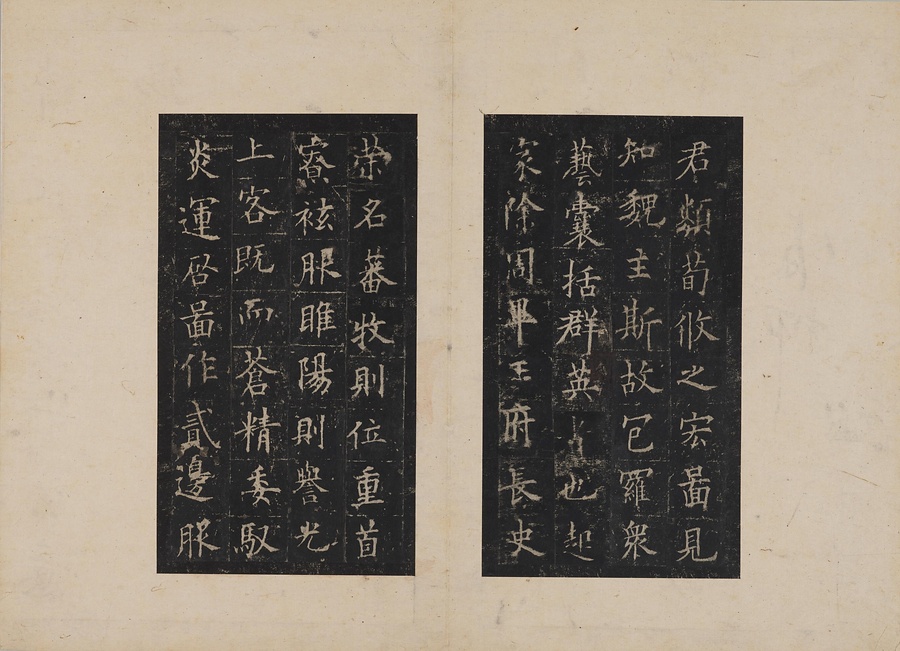 君類荀攸之宏啚見
知魏主斯故包羅衆
藝囊括群英者也起
家除周畢王府長史
榮名蕃牧則位重首
寮袨服睢陽則譽光
上客既而蒼精委馭
炎運启啚作貳邊服